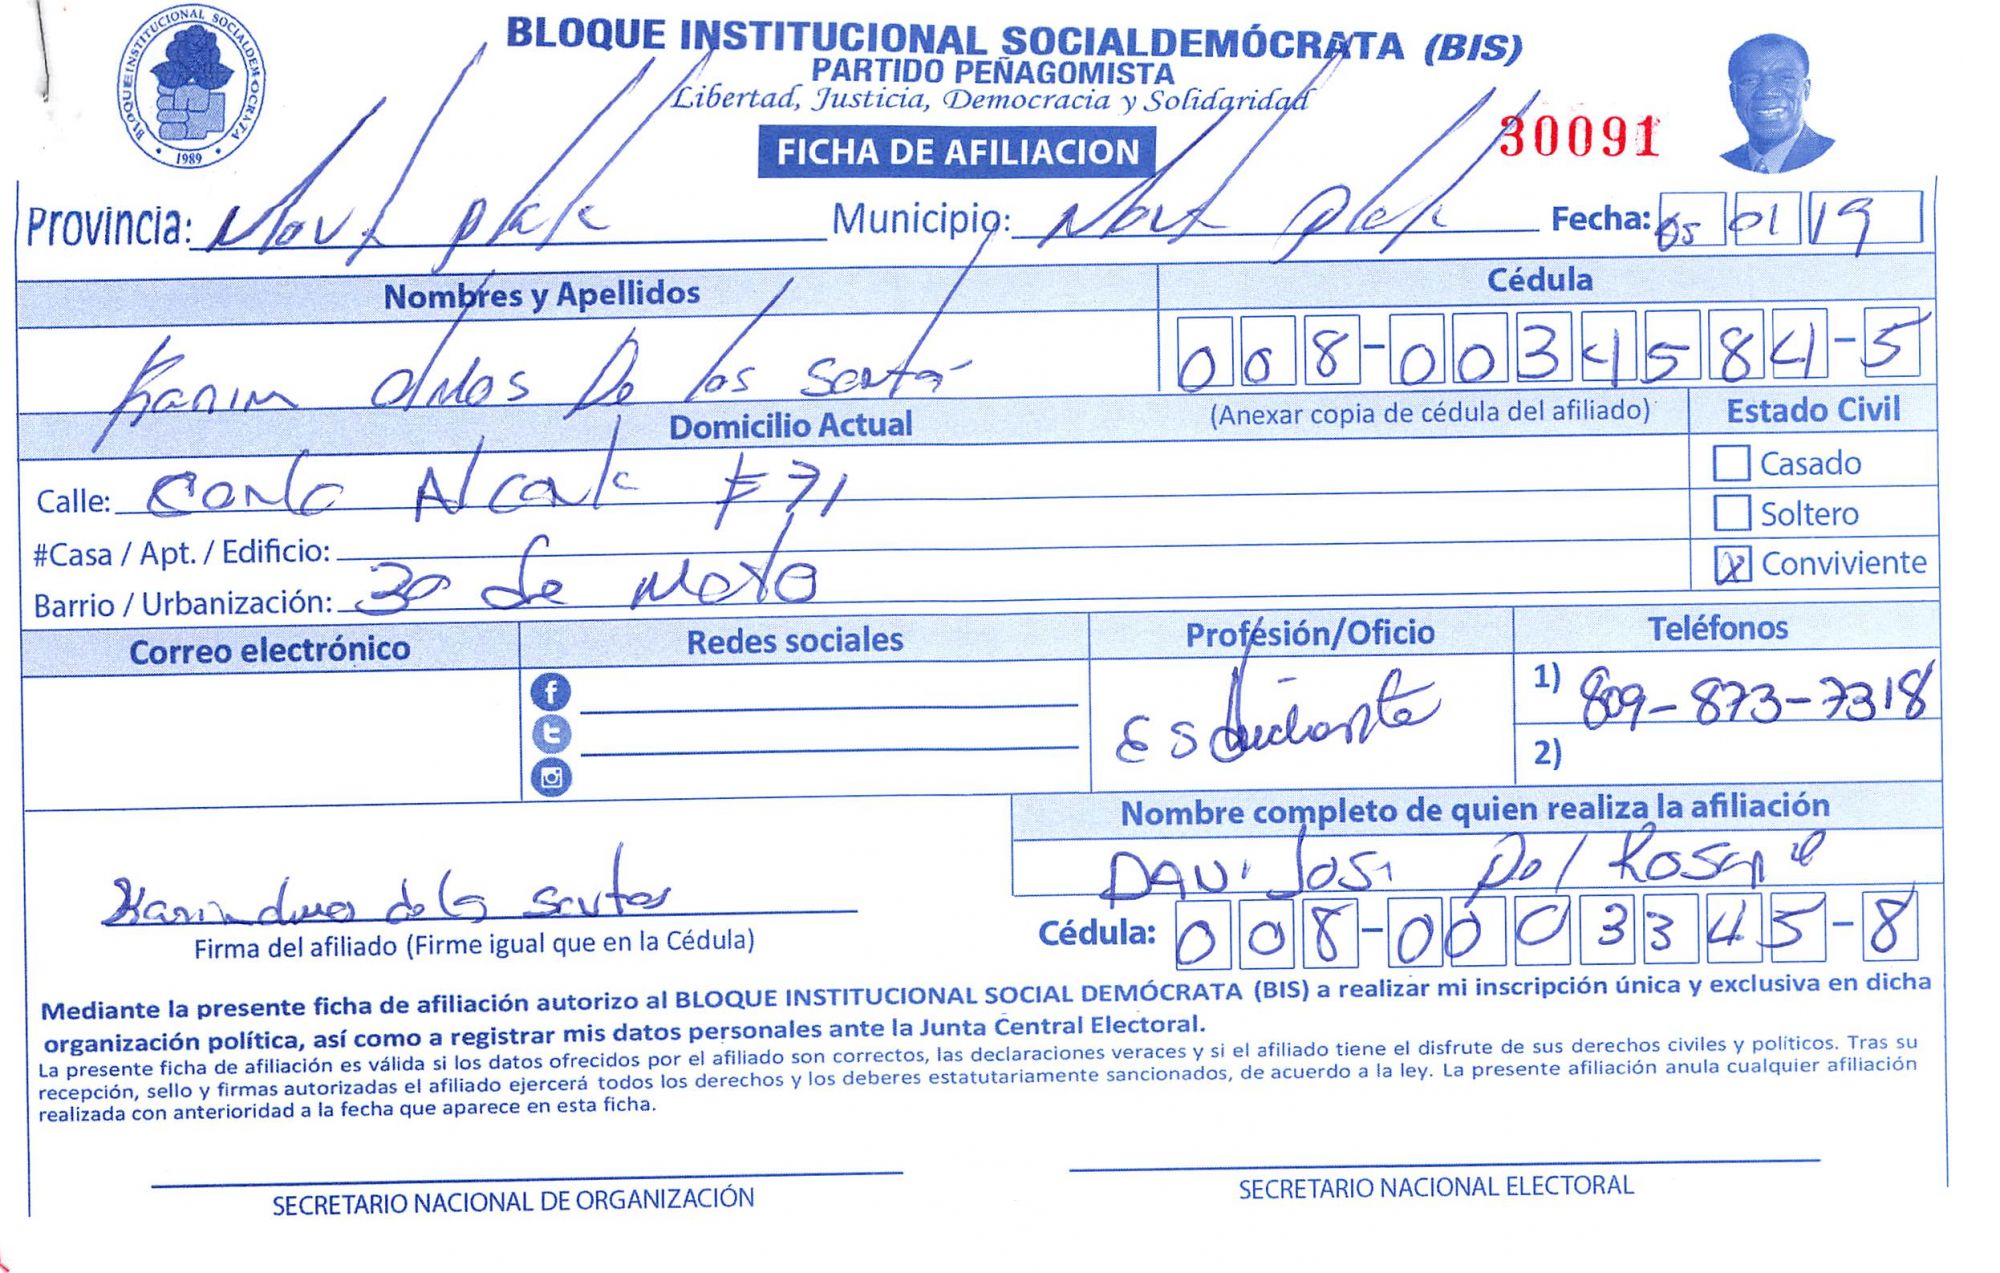 BLOQUE INSTITUCIONAL SOCIALDEMOCRATA
1989
BLOQUE INSTITUCIONAL SOCIALDEMÓCRATA (BIS)
PARTIDO PEÑAGOMISTA
Libertad, Justicia, Democracia y Solidaridad
FICHA DE AFILIACION
30091
Provincia: Mont plat Municipio: Mont plat Fecha: 05 01 19
Nombres y Apellidos Cédula
De los 008-0034584-5
Domicilio Actual (Anexar copia de cédula del afiliado) Estado Civil
Casado
Calle: #71
Soltero
#Casa / Apt. / Edificio:
X Conviviente
Barrio / Urbanización: 30 de
Correo electrónico Redes sociales Profesión/Oficio Teléfonos
Estudiante 1) 809-873-7318
2)
Nombre completo de quien realiza la afiliación
Del Rosario
Firma del afiliado (Firme igual que en la Cédula)
Cédula: 008-0003345-8
Mediante la presente ficha de afiliación autorizo al BLOQUE INSTITUCIONAL SOCIAL DEMÓCRATA (BIS) a realizar mi inscripción única y exclusiva en dicha
organización política, así como a registrar mis datos personales ante la Junta Central Electoral.
La presente ficha de afiliación es válida si los datos ofrecidos por el afiliado son correctos, las declaraciones veraces y si el afiliado tiene el disfrute de sus derechos civiles y políticos. Tras su
recepción, sello y firmas autorizadas el afiliado ejercerá todos los derechos y los deberes estatutariamente sancionados, de acuerdo a la ley. La presente afiliación anula cualquier afiliación
realizada con anterioridad a la fecha que aparece en esta ficha.
SECRETARIO NACIONAL DE ORGANIZACIÓN SECRETARIO NACIONAL ELECTORAL